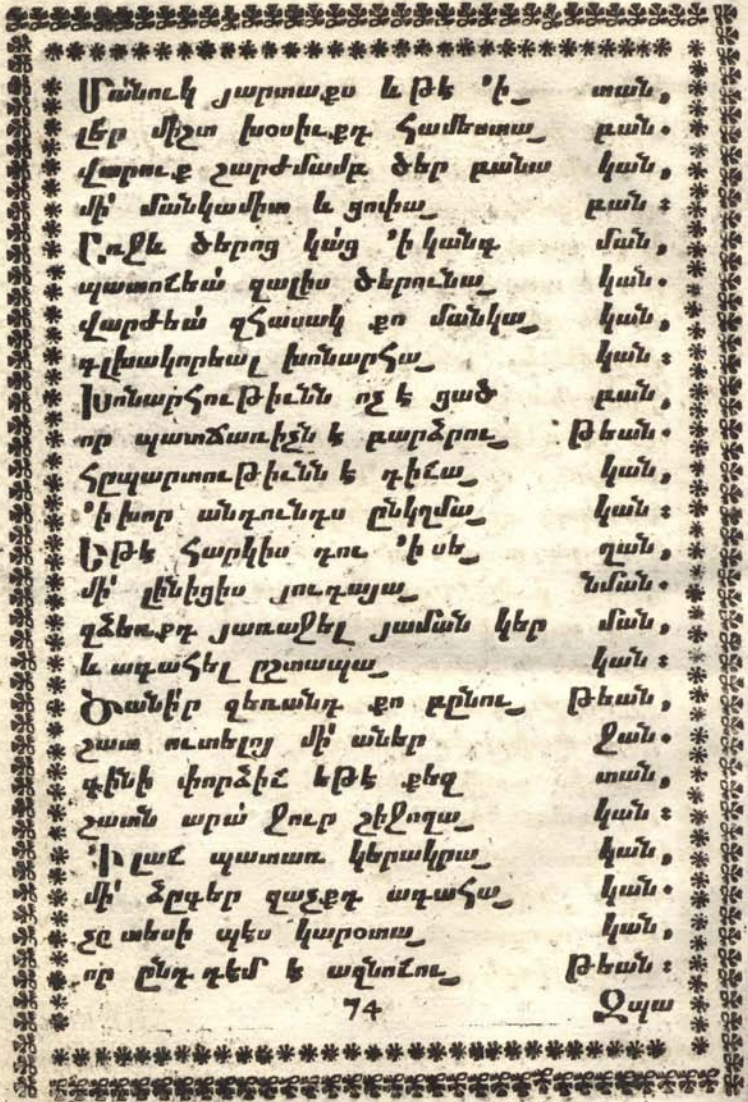 Մանուկ յարտաքս և թէ ՚ի_ տան,
լեր միշտ խօսիւքդ համեստա_ բան.
վարուք շարժմամբ ծեր բանա կան,
մի՛ մանկամիտ և ցոփա_ բան :
Ըռջև ծերոց կաց ՚ի կանգ ման,
պատուեա զալիս ծերունա_ կան.
վարժեա զհասակ քո մանկա_ կան,
գլխակորեալ խոնարհա_ կան :
Խոնարհութիւնն ոչ է ցած բան,
որ պատճառիչն է բարձրու_ թեան.
հըպարտութիւնն է դիւա_ կան,
՚ի խոր անդունդս ընկղմա_ կան :
Եթէ հարկիս դու ՚ի սե_ ղան,
մի՛ լինիցիս յուդայա_ նման.
զձեռքդ յառաջել յաման կեր ման,
և ագահել ըշտապա_ կան :
Ծանի՛ր զեռանդ քո բընու_ թեան,
շատ ուտելոյ մի՛ աներ ջան.
գինի փորձիւ եթէ քեզ տան,
շատն արա ջուր շիջողա_ կան :
՚Ի լաւ պատառ կերակրա_ կան,
մի՛ ձըգեր զաչքդ ագահա_ կան.
չը տեսի պէս կարօտա_ կան,
որ ընդ դէմ է ազնուու_ թեան :
74 Զպա